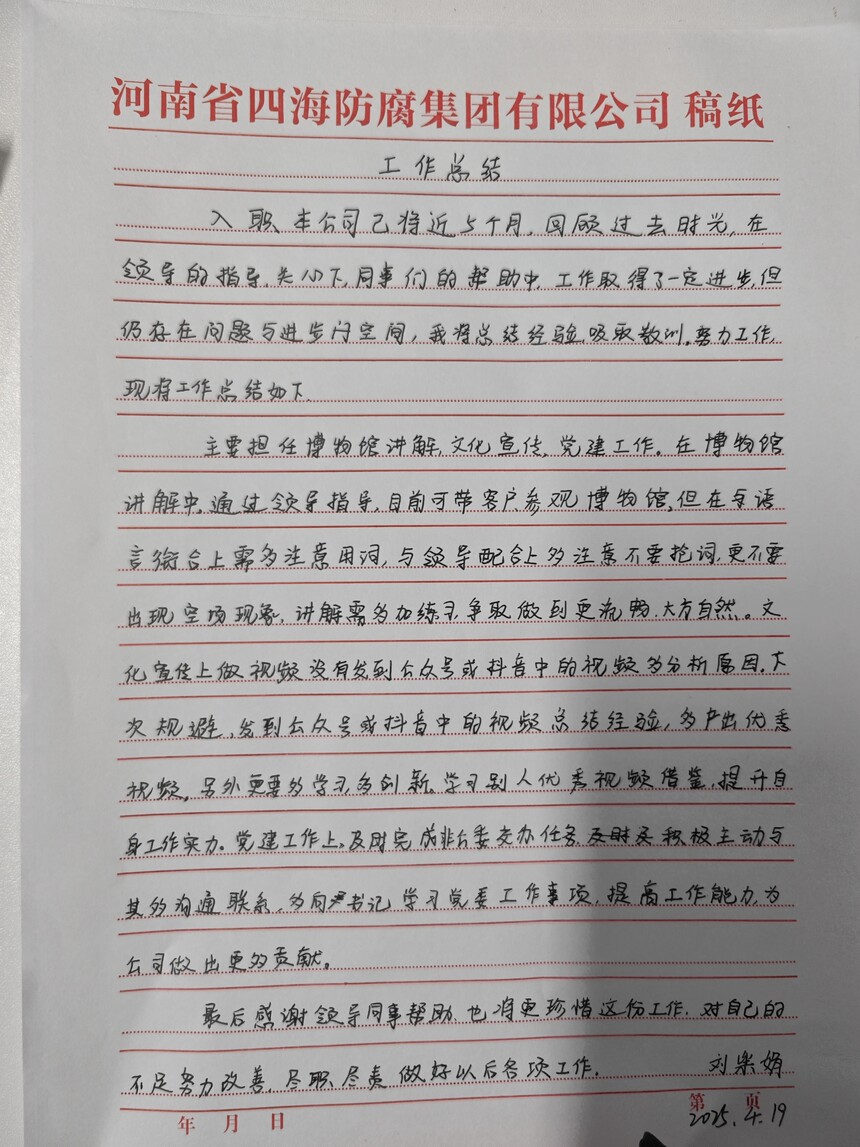 河南省四海防腐集团有限公司 稿纸
工作总结
入职本公司已将近5个月,回顾过去时光,在
领导的指导、关心下,同事们的帮助中,工作取得了一定进步,但
仍存在问题与进步门空间,我将总结经验,吸取教训,努力工作,
现将工作总结如下.
主要担任博物馆讲解,文化宣传,党建工作。在博物馆
讲解中,通过领导指导,目前可带客户参观博物馆,但在与语
言衔合上需多注意用词,与领导配合上多注意不要抢词,更不要
出现空场现象,讲解需多加练习,争取做到更流畅、大方自然。文
化宣传上做视频没有发到公众号或抖音中的视频多分析原因,下
次规避,发到公众号或抖音中的视频总结经验,多产出优秀
视频。另外更要多学习多创新。学习别人优秀视频借鉴,提升自
身工作实力。党建工作上,及时完成非公委交办任务,及时及积极主动与
其多沟通联系,多向尹书记学习党委工作事项,提高工作能力,为
公司做出更多贡献。
最后感谢领导同事帮助,也将更珍惜这份工作,对自己的
不足努力改善,尽职、尽责做好以后各项工作.
刘果娟
年 月 日
第 页
2025.4.19